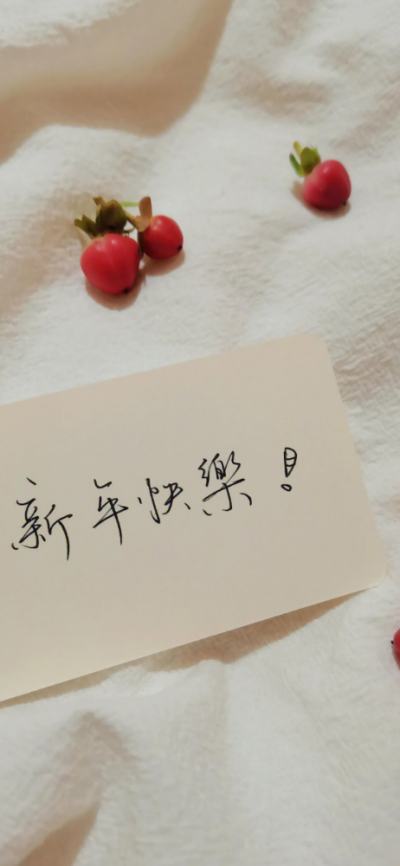 新年快樂!